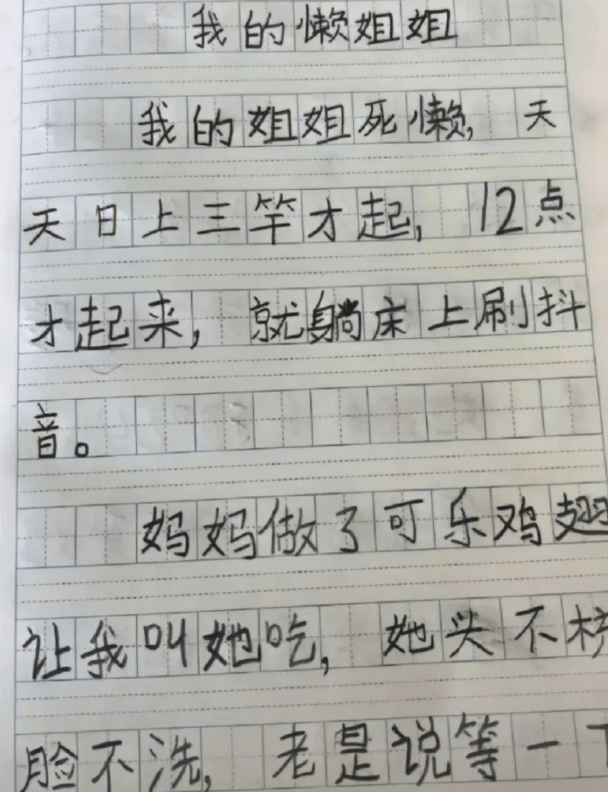 我的懒姐姐
我的姐姐死懒，天
天日上三竿才起，12点
才起来，就躺床上刷抖
音。
妈妈做了可乐鸡翅
让我叫她吃，她头不梳
脸不洗，老是说等一下